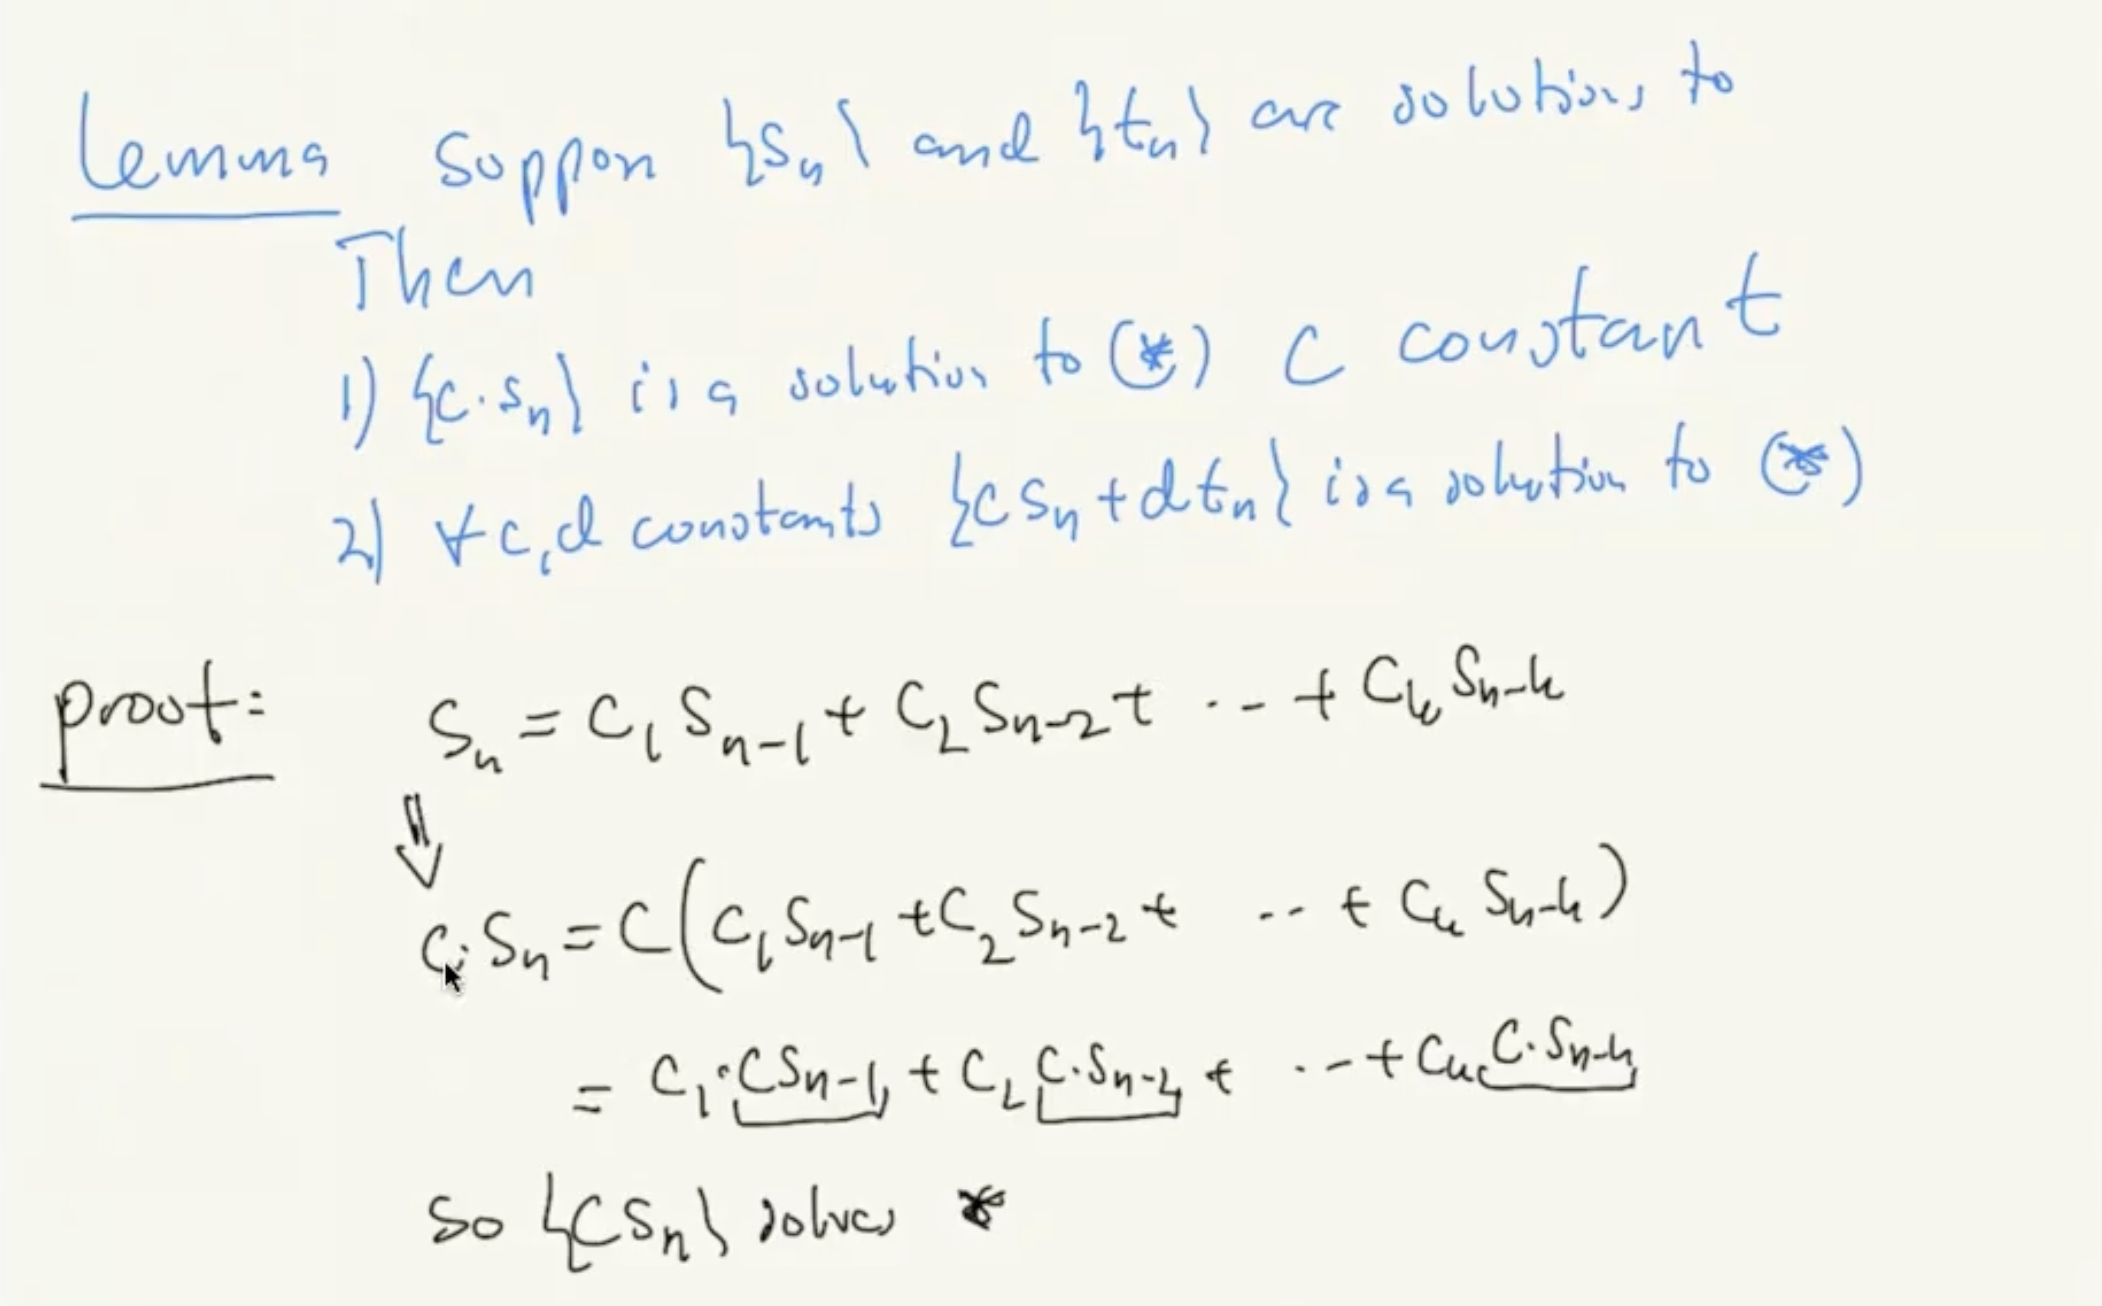 Lemma Suppose {Sn} and {tn} are solutions to
Then
1) {c·Sn} is a solution to (*) C constant
2) ∀ c,d constants {cSn + dtn} is a solution to (*)
proof: Sn = C1 Sn-1 + C2 Sn-2 + ... + Ck Sn-k
⇓
C·Sn = C(C1 Sn-1 + C2 Sn-2 + ... + Ck Sn-k)
= C1·CSn-1 + C2 C·Sn-2 + ... + Ck C·Sn-k
So {CSn} solves *